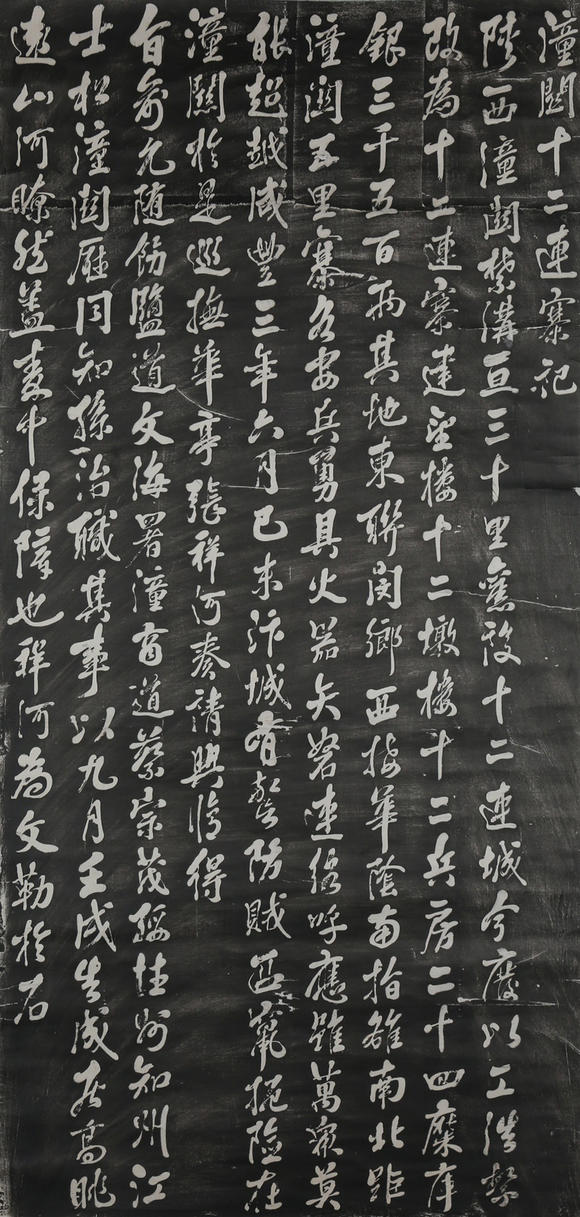 潼關十二連寨記
陝西潼關禁溝亘三十里舊設十二連城今廢以工浩繁
改為十二連寨建望樓十二墩樓十二兵房二十四糜庫
銀三千五百兩其地東聯閿鄉西接華陰南指雒南北距
潼關五里寨各安兵勇具火器矢弩連絡呼應雖萬衆莫
能超越咸豐三年六月己未汴城有警防賊西竄扼險在
潼關於是巡撫華亭張祥河奏請興修得
旨俞允隨飭鹽道文海署潼商道蔡宗茂綏德州知州江
士松潼關廳同知孫治職其事以九月壬戌告成居高眺
遠山河瞭然蓋秦中保障也祥河為文勒於石